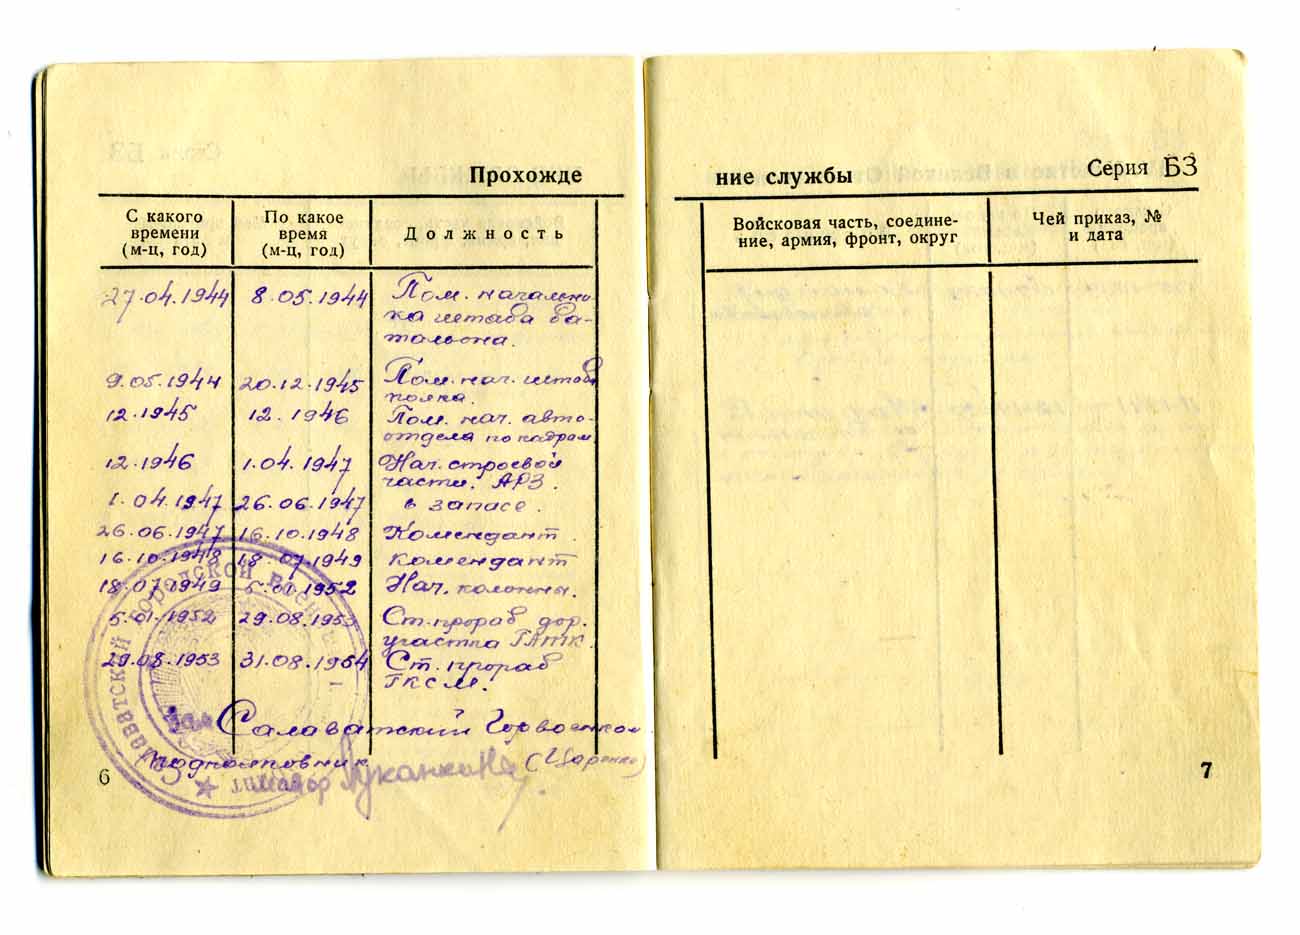 Прохожде
С какого времени (м-ц, год)
По какое время (м-ц, год)
Должность
27.04.1944 8.05.1944 Пом. начальни-
ка штаба ба-
тальона.
9.05.1944 20.12.1945 Пом. нач. штаба
полка.
12.1945 12.1946 Пом. нач. авто-
отдела по кадрам
12.1946 1.04.1947 Нач. строевой
части. АРЗ.
1.04.1947 26.06.1947 в запасе.
26.06.1947 16.10.1948 Комендант.
16.10.1948 18.07.1949 комендант
18.07.1949 5.01.1952 Нач. колонны.
5.01.1952 29.08.1953 Ст. прораб дор.
участка ГАТК.
29.08.1953 31.08.1954 Ст. прораб
ГКСМ.
Салаватский Горвоенком
подполковник (Царенко)
майор
Салаватский городской
6
ние службы
Серия БЗ
Войсковая часть, соедине-
ние, армия, фронт, округ
Чей приказ, №
и дата
7